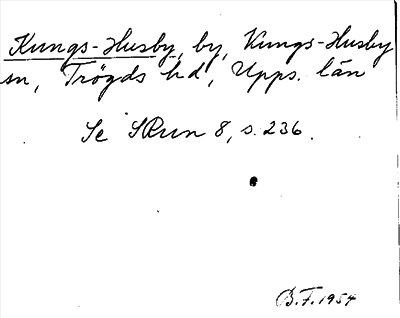 Kungs-Husby, by, Kungs-Husby
sn, Trögds hd, Upps. län
Se SRun 8, s. 236.
B.F. 1954